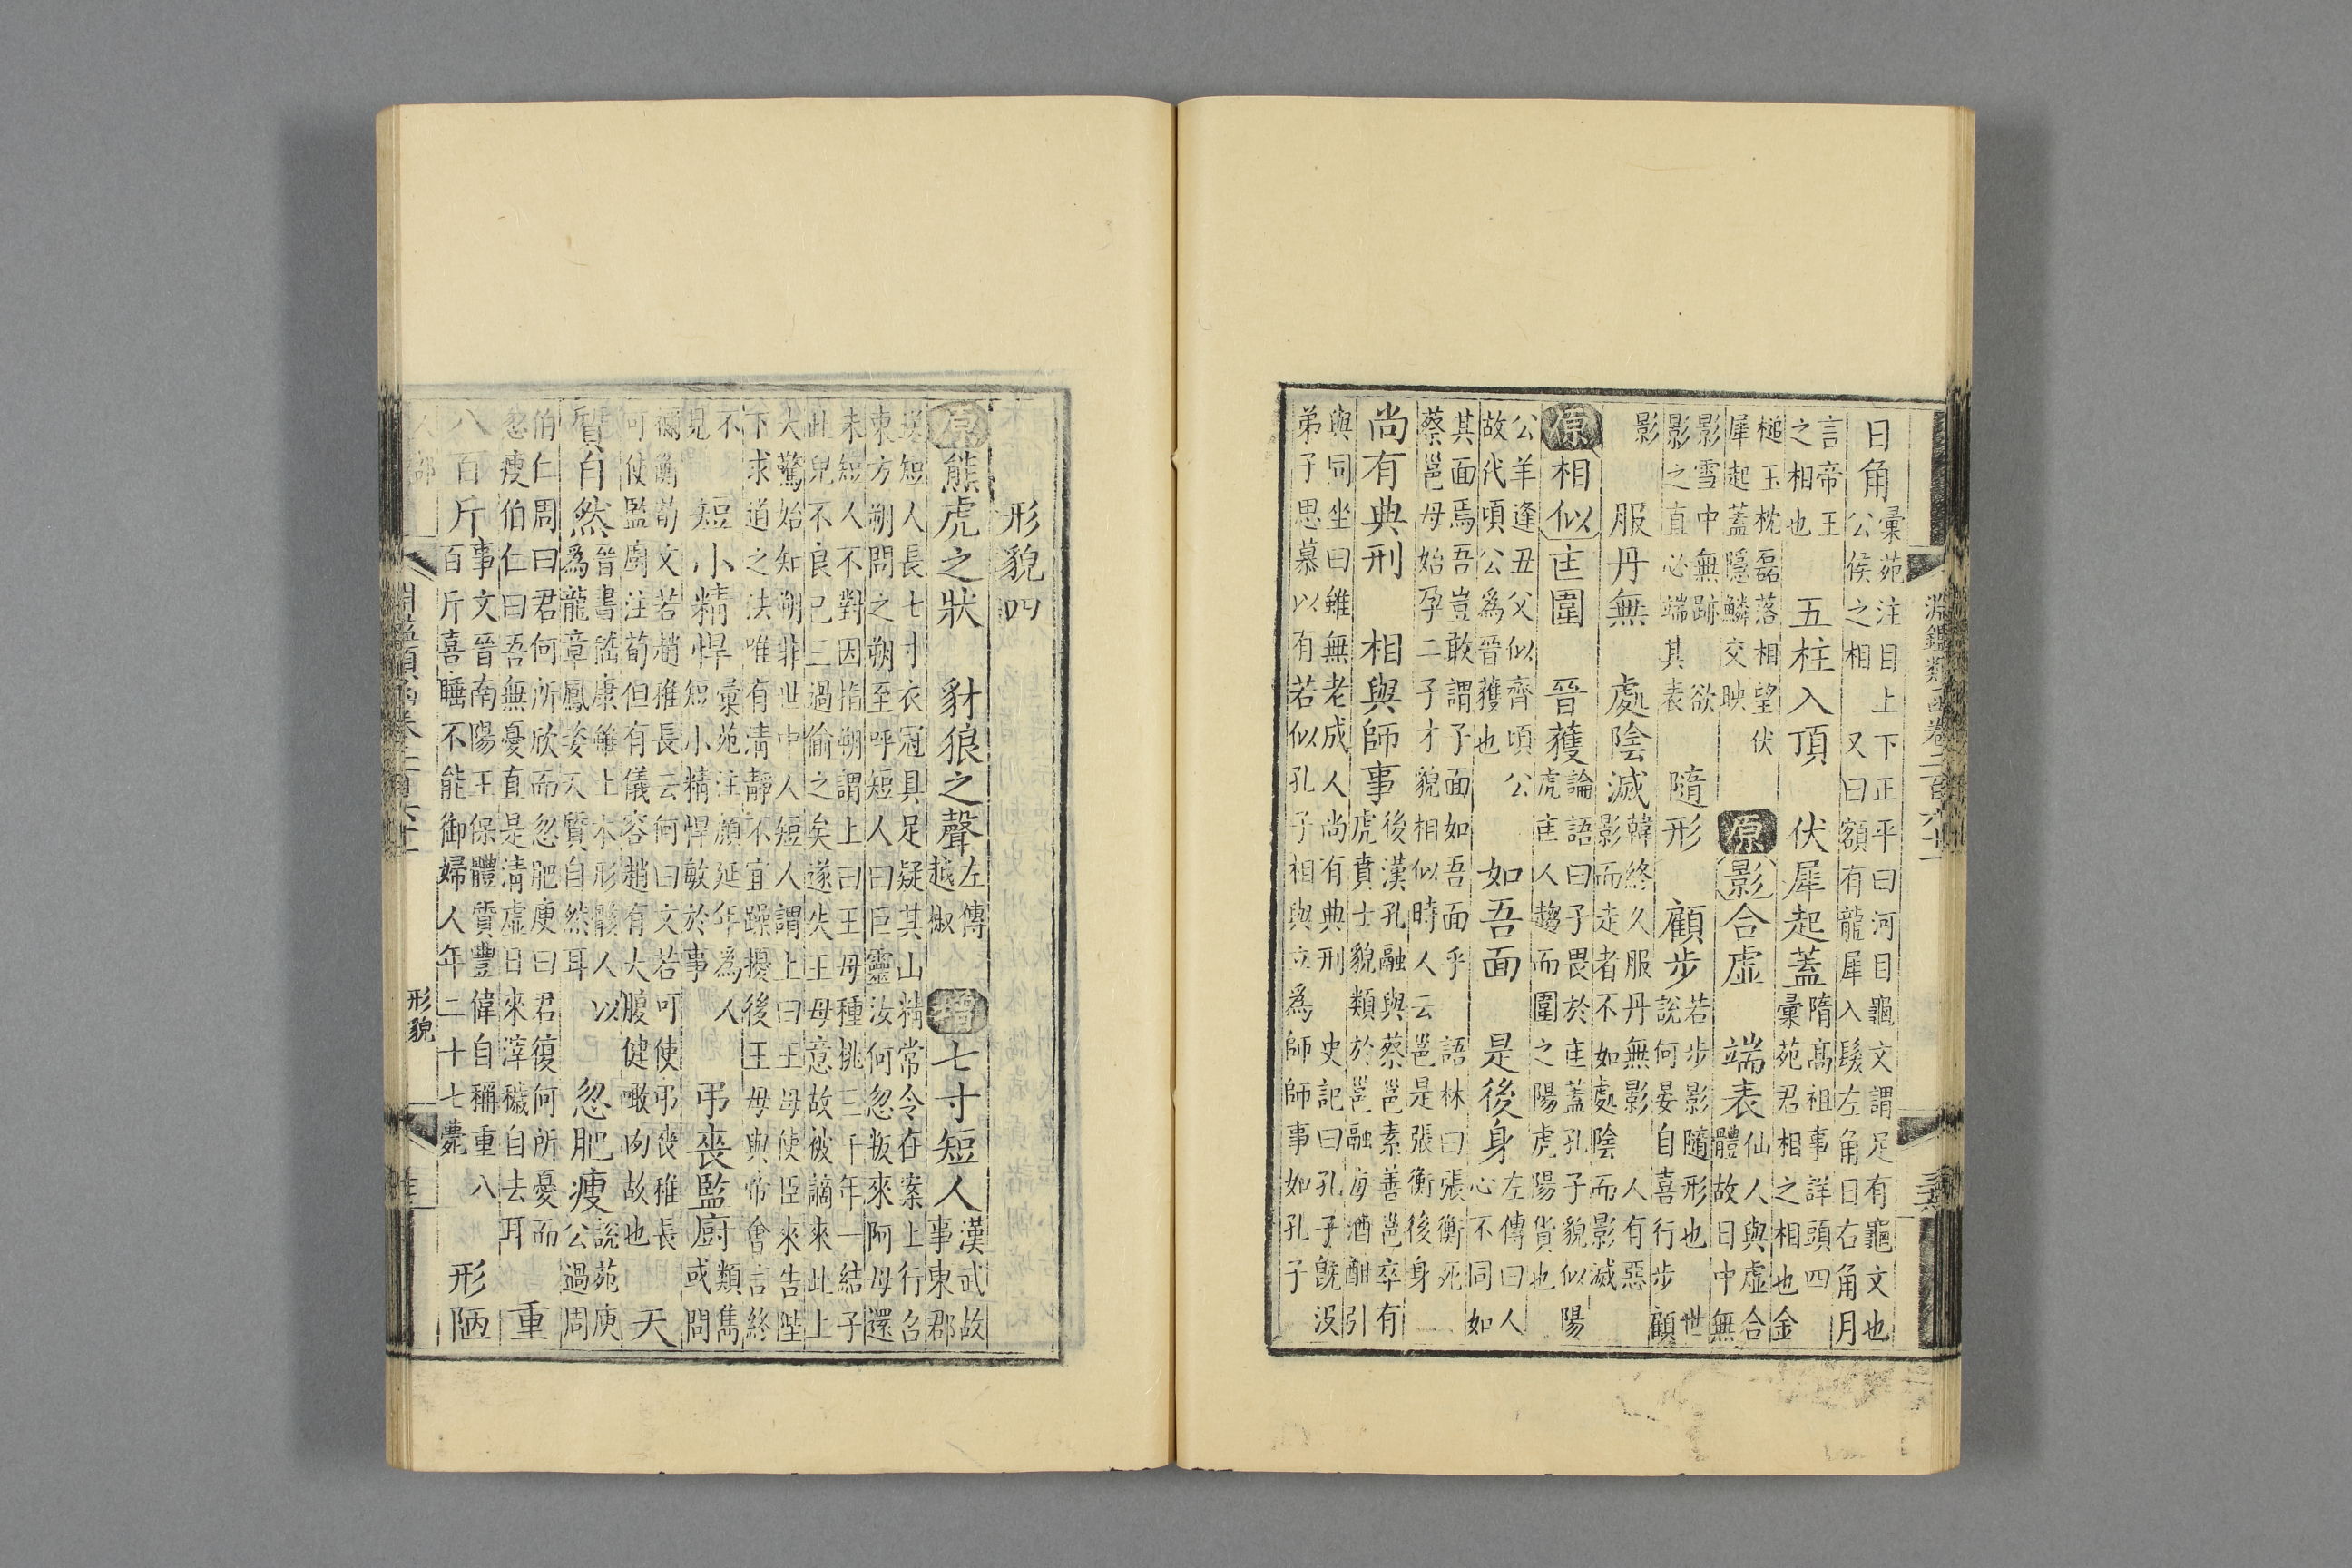 淵鑑類函卷二百六十一
日角
彙苑注目上下正平曰河目龜文謂足有龜文也
公侯之相　又曰額有龍犀入髮左角日右角月
言帝王
之相也
五柱入頂　伏犀起蓋
隋高祖事詳頭四
彙苑君相之相也金
槌玉枕磊落相望伏
犀起蓋隱鱗交映
原影合虛　端表
仙人與虛合
體故日中無
影雪中無跡　欲
影之直必端其表
隨形　顧步
若步影隨形也　世
說何晏自喜行步顧
影
服丹無　處陰滅
韓終久服丹無影　人有惡
影而走者不如處陰而影滅
原相似　匡圍　晉獲
論語曰子畏於匡蓋孔子貌似陽
虎匡人趨而圍之陽虎陽貨也
公羊逢丑父似齊頃公
故代頃公為晉獲也
如吾面　是後身
左傳曰人
心不同如
其面焉吾豈敢謂子面如吾面乎　語林曰張衡死
蔡邕母始孕二子才貌相似時人云邕是張衡後身
尚有典刑　相與師事
後漢孔融與蔡邕素善邕卒有
虎賁士貌類於邕融每酒酣引
與同坐曰雖無老成人尚有典刑　史記曰孔子既沒
弟子思慕以有若似孔子相與立為師師事如孔子
形貌四
原熊虎之狀　豺狼之聲
左傳
越椒
增七寸短人
漢武故
事東郡
送短人長七寸衣冠具足疑其山精常令在案上行召
東方朔問之朔至呼短人曰巨靈汝何忽叛來阿母還
未短人不對因指朔謂上曰王母種桃三千年一結子
此兒不良已三過偷之矣遂失王母意故被謫來此上
大驚始知朔非世中人短人謂上曰王母使臣來告陛
下求道之法唯有清靜不宜躁擾後王母與帝會言終
不
見
短小精悍
彙苑注顏延年為人
短小精悍敏於事
弔喪監廚
類雋
或問
禰衡荀文若趙稚長云何曰文若可使弔喪稚長
可使監廚注荀但有儀容趙有大腹健噉肉故也
天
質自然
晉書嵇康雖土木形骸人以
為龍章鳳姿天質自然耳
忽肥瘦
說苑庾
公過周
伯仁周曰君何所欣而忽肥庾曰君復何所憂而
忽瘦伯仁曰吾無憂直是清虛日來滓穢自去耳
重
八百斤
事文晉南陽王保體質豐偉自稱重八
百斤喜睡不能御婦人年二十七薨
形陋
人部
淵鑑類函卷二百六十一
形貌